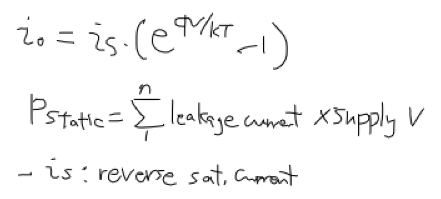 i₀ = is.(e^qV/kT -1)
Pstatic = n∑1 leakage current x supply V
- is : reverse sat. current